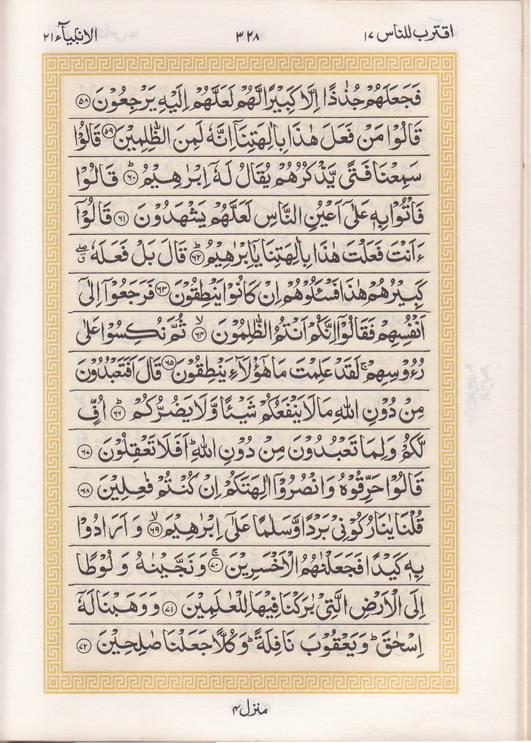 الانبيآء ٢١ ٣٢٨ اقترب للناس ١٧
فَجَعَلَهُمْ جُذٰذًا اِلَّا كَبِيْرًا لَّهُمْ لَعَلَّهُمْ اِلَيْهِ يَرْجِعُوْنَ ﴿٥٨﴾
قَالُوْا مَنْ فَعَلَ هٰذَا بِاٰلِهَتِنَاۤ اِنَّهٗ لَمِنَ الظّٰلِمِيْنَ ﴿٥٩﴾ قَالُوْا
سَمِعْنَا فَتًى يَّذْكُرُهُمْ يُقَالُ لَهٗۤ اِبْرٰهِيْمُ ؕ﴿٦٠﴾ قَالُوْا
فَاْتُوْا بِهٖ عَلٰۤى اَعْيُنِ النَّاسِ لَعَلَّهُمْ يَشْهَدُوْنَ ﴿٦١﴾ قَالُوْۤا
ءَاَنْتَ فَعَلْتَ هٰذَا بِاٰلِهَتِنَا يٰۤاِبْرٰهِيْمُ ؕ﴿٦٢﴾ قَالَ بَلْ فَعَلَهٗ ۖۗ
كَبِيْرُهُمْ هٰذَا فَسْـَٔلُوْهُمْ اِنْ كَانُوْا يَنْطِقُوْنَ ﴿٦٣﴾ فَرَجَعُوْۤا اِلٰۤى
اَنْفُسِهِمْ فَقَالُوْۤا اِنَّكُمْ اَنْتُمُ الظّٰلِمُوْنَ ۙ﴿٦٤﴾ ثُمَّ نُكِسُوْا عَلٰى
رُءُوْسِهِمْ ۚ لَقَدْ عَلِمْتَ مَا هٰۤؤُلَآءِ يَنْطِقُوْنَ ﴿٦٥﴾ قَالَ اَفَتَعْبُدُوْنَ
مِنْ دُوْنِ اللّٰهِ مَا لَا يَنْفَعُكُمْ شَيْـًٔا وَّلَا يَضُرُّكُمْ ؕ﴿٦٦﴾ اُفٍّ
لَّكُمْ وَلِمَا تَعْبُدُوْنَ مِنْ دُوْنِ اللّٰهِ ؕ اَفَلَا تَعْقِلُوْنَ ﴿٦٧﴾
قَالُوْا حَرِّقُوْهُ وَانْصُرُوْۤا اٰلِهَتَكُمْ اِنْ كُنْتُمْ فٰعِلِيْنَ ﴿٦٨﴾
قُلْنَا يٰنَارُ كُوْنِيْ بَرْدًا وَّسَلٰمًا عَلٰۤى اِبْرٰهِيْمَ ۙ﴿٦٩﴾ وَاَرَادُوْا
بِهٖ كَيْدًا فَجَعَلْنٰهُمُ الْاَخْسَرِيْنَ ۚ﴿٧٠﴾ وَنَجَّيْنٰهُ وَلُوْطًا
اِلَى الْاَرْضِ الَّتِيْ بٰرَكْنَا فِيْهَا لِلْعٰلَمِيْنَ ﴿٧١﴾ وَوَهَبْنَا لَهٗۤ
اِسْحٰقَ ؕ وَيَعْقُوْبَ نَافِلَةً ؕ وَكُلًّا جَعَلْنَا صٰلِحِيْنَ ﴿٧٢﴾
منزل ٤